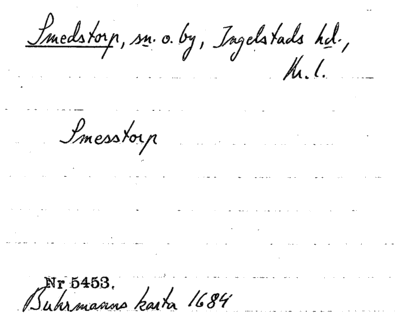 Smedstorp, sn. o. by, Ingelstads hd.,
Kr. l.
Smesstorp
Nr 5453,
Buhrmanns karta 1684